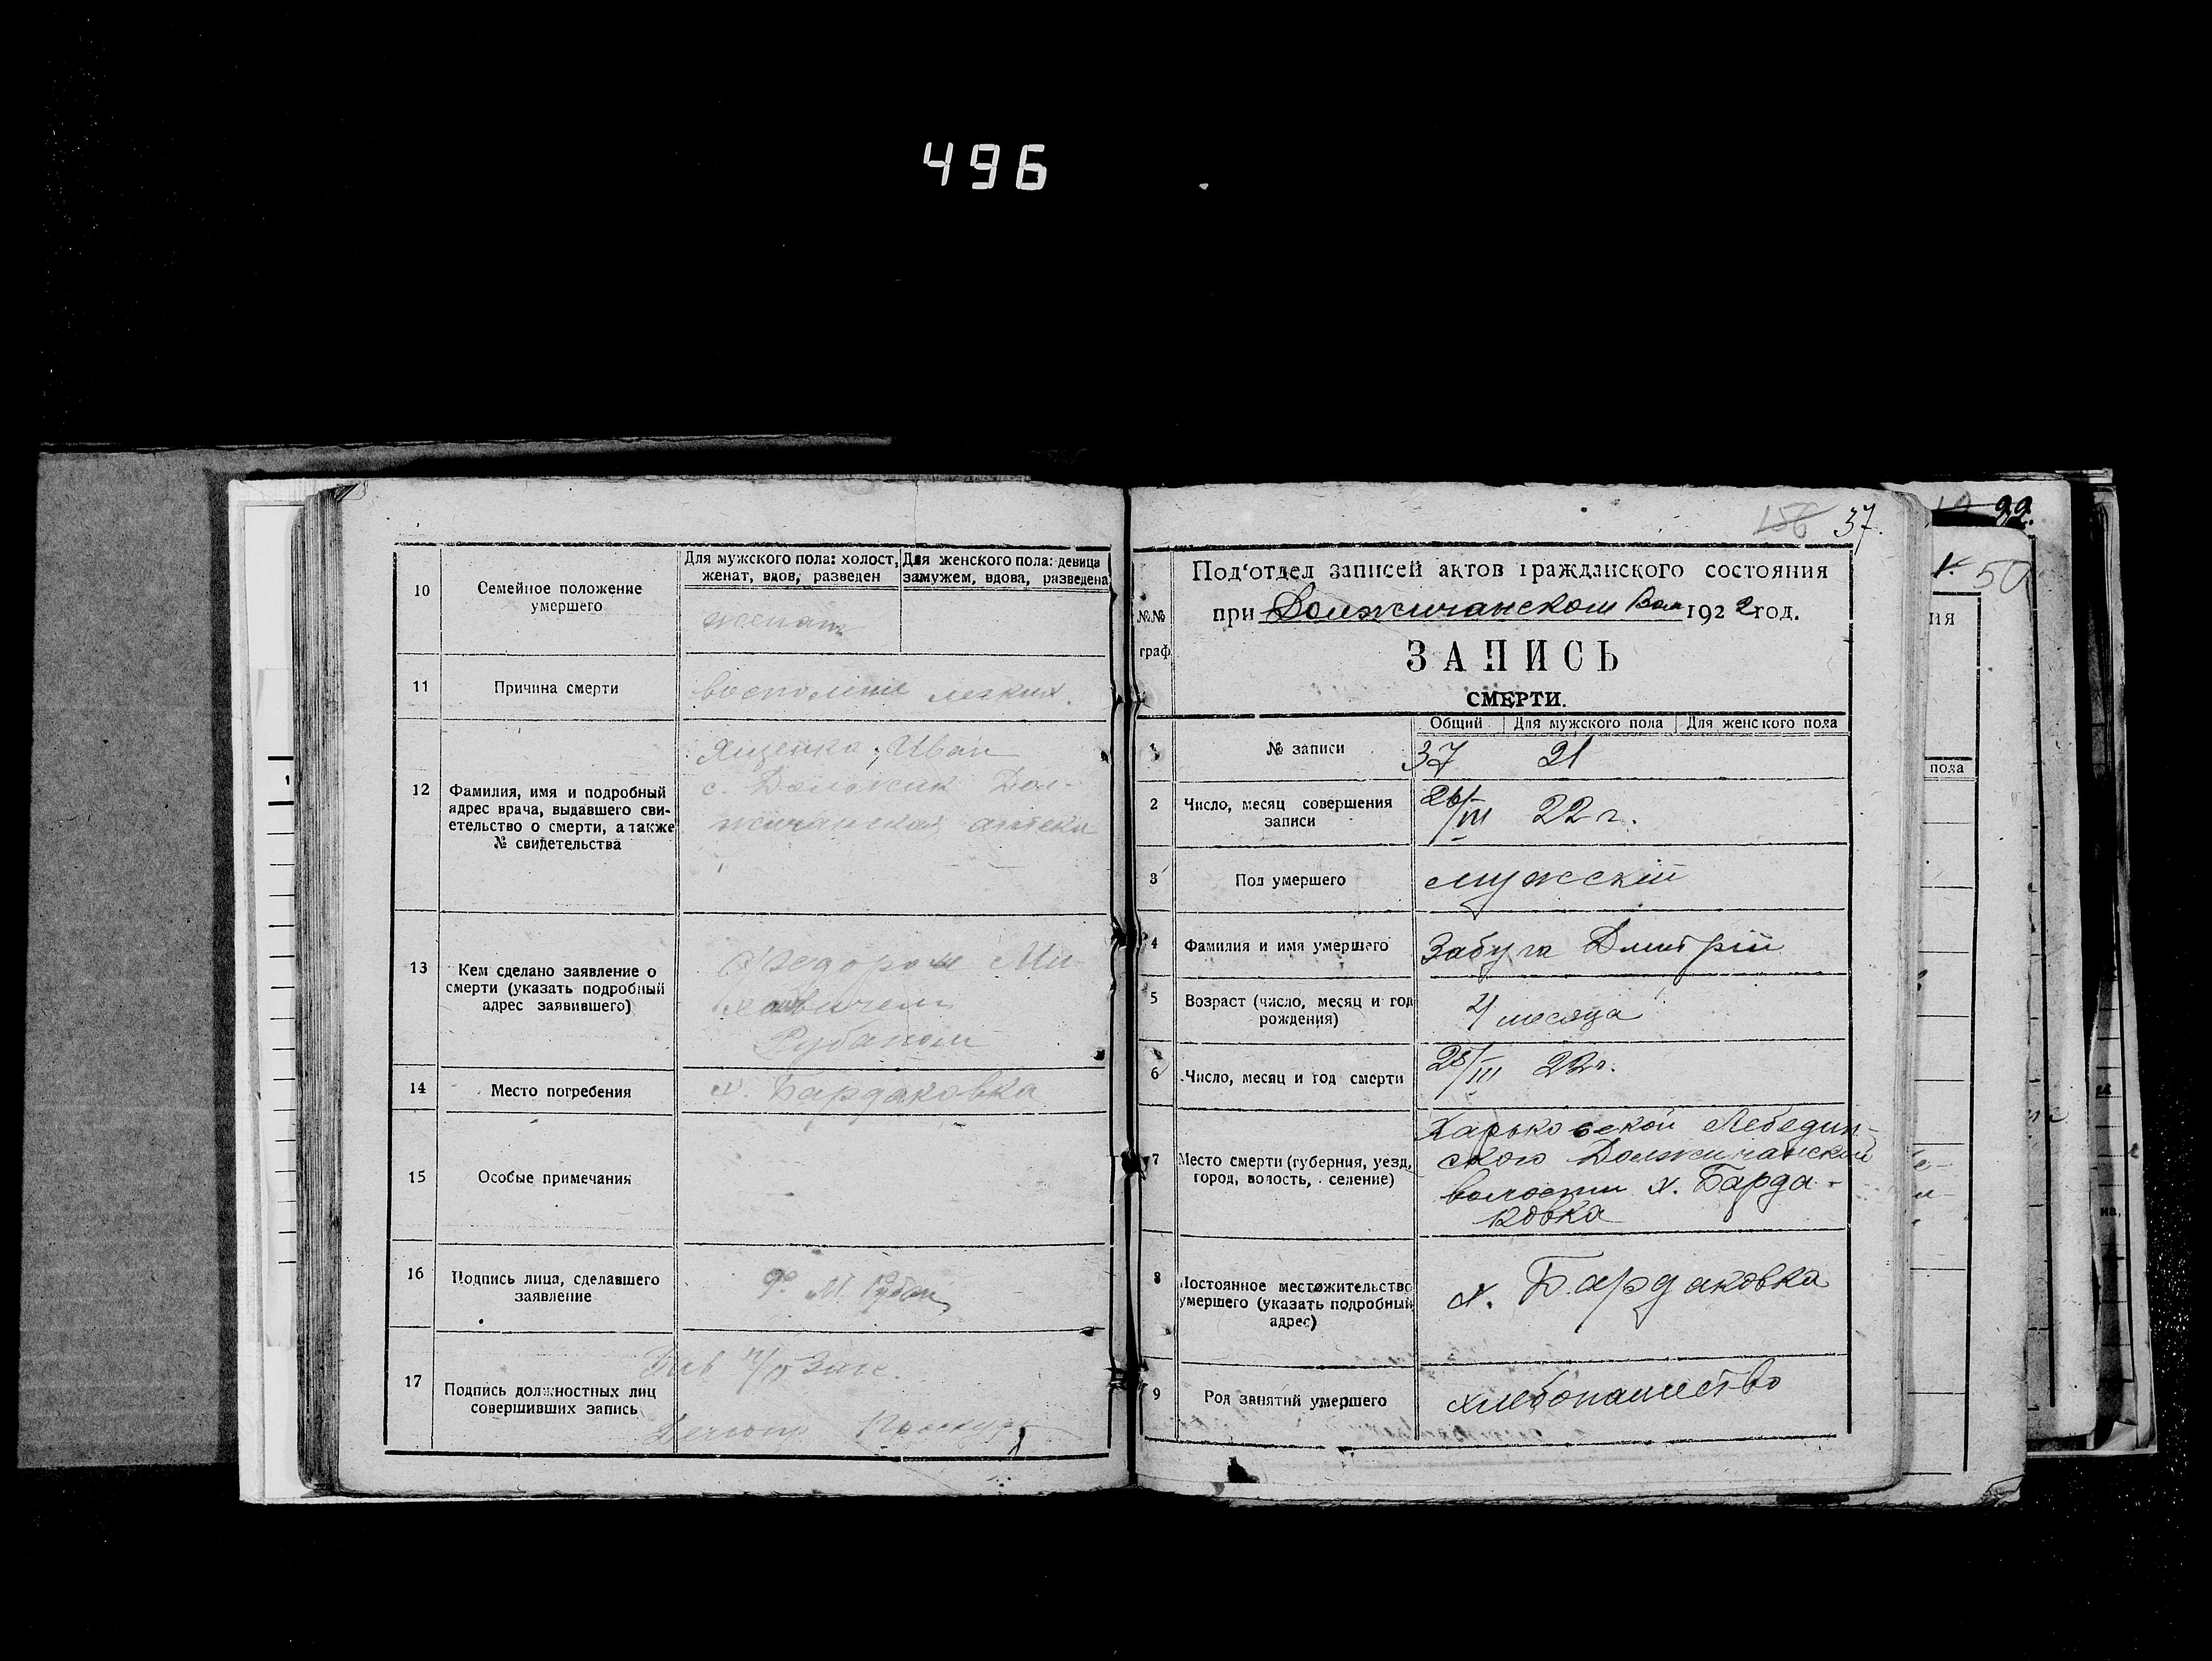 496
10
Семейное положение
умершего
Для мужского пола: холост,
женат, вдов, разведен
Для женского пола: девица
замужем, вдова, разведена
женат
11
Причина смерти
легких.
12
Фамилия, имя и подробный
адрес врача, выдавшего сви-
етельство о смерти, а также
№ свидетельства
Ященко, Иван
с. Должик Дол-
жичанской аптеки
13
Кем сделано заявление о
смерти (указать подробный
адрес заявившего)
Федором Ми-
Рубаном
14
Место погребения
х. Бардаковка
15
Особые примечания
16
Подпись лица, сделавшего
заявление
М. Рубан
17
Подпись должностных лиц
совершивших запись
Зав п/о Загс.
156 37.
№№
граф
Под'отдел записей актов гражданского состояния
при Должичанском Вол 1922 год.
ЗАПИСЬ
СМЕРТИ.
Общий Для мужского пола Для женского пола
1
№ записи
37 21
2
Число, месяц совершения
записи
26/III 22 г.
3
Пол умершего
мужскій
4
Фамилия и имя умершего
Забуга Дмитрій
5
Возраст (число, месяц и год
рождения)
месяца
6
Число, месяц и год смерти
25/III 22г.
7
Место смерти (губерния, уезд,
город, волость, селение)
Харьковской Лебедин-
ского Должичанской
волости х. Барда-
ковка
8
Постоянное местожительство
умершего (указать подробный
адрес)
х. Бардаковка
9
Род занятий умершего
хлебопашество
50
ия
пола